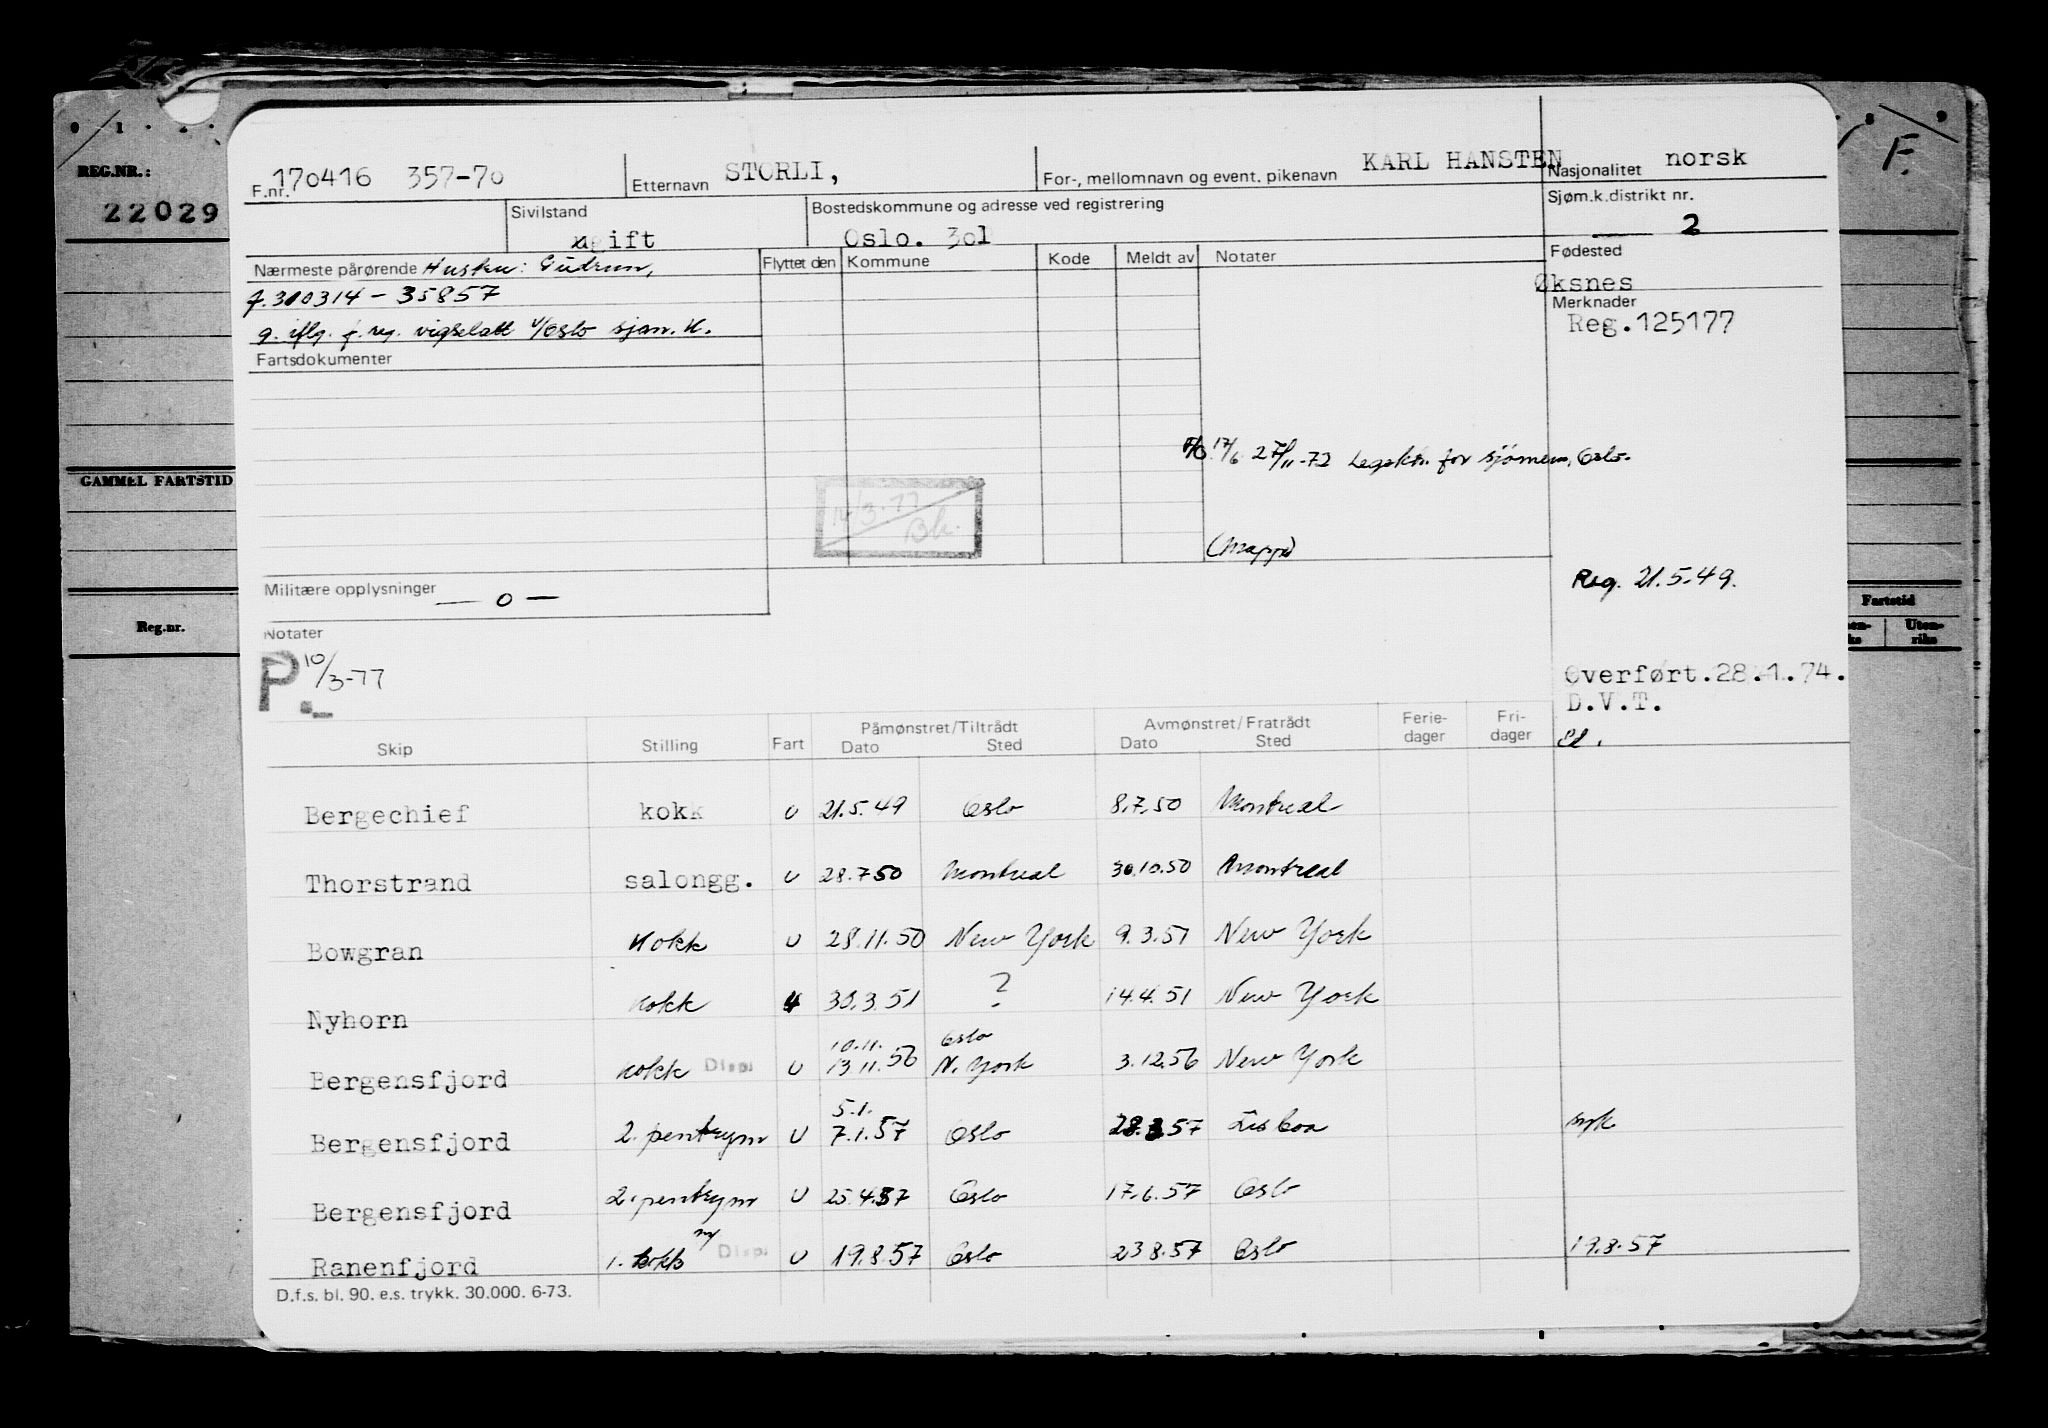 0 1 8 9
REG.NR.:
22029
GAMMEL FARTSTID
Reg.nr.
F.
Fartstid
Uten-
riks
F.nr. 170416 357-70
Etternavn STORLI,
For-, mellomnavn og event. pikenavn KARL HANSTEN
Nasjonalitet norsk
Sivilstand
gift
Bostedskommune og adresse ved registrering
Oslo. 301
Sjøm.k.distrikt nr.
2
Nærmeste pårørende Hustru: Gudrun,
f. 310314 - 35857
g. iflg. f. reg. vigselatt v/Oslo sjøm. k.
Flyttet den Kommune Kode Meldt av Notater
Fødested
Øksnes
Merknader
Reg.125177
Fartsdokumenter
17/6 27/11-72 Legektr. for sjømenn, Oslo.
14/3-77
Bk.
(Mappe)
Militære opplysninger — o —
Reg. 21.5.49.
Notater
P. 10/3-77
Overført.28.1.74.
D.V.T.
El.
Skip Stilling Fart Påmønstret/Tiltrådt Dato Sted Avmønstret/Fratrådt Dato Sted Ferie-dager Fri-dager
Bergechief kokk U 21.5.49 Oslo 8.7.50 Montreal
Thorstrand salongg. U 28.7.50 Montreal 30.10.50 Montreal
Bowgran Kokk U 28.11.50 New York 9.3.51 New York
Nyhorn kokk U 30.3.51 ? 14.4.51 New York
10.11. Oslo
Bergensfjord kokk Disp. U 13.11.56 N. York 3.12.56 New York
5.1.
Bergensfjord 2. pentrym U 7.1.57 Oslo 28.3.57 Lisboa syk
Bergensfjord 2. pentrym U 25.4.57 Oslo 17.6.57 Oslo
Ranenfjord 1. kokk Disp. U 19.8.57 Oslo 23.8.57 Oslo 19.8.57
D.f.s. bl. 90. e.s. trykk. 30.000. 6-73.